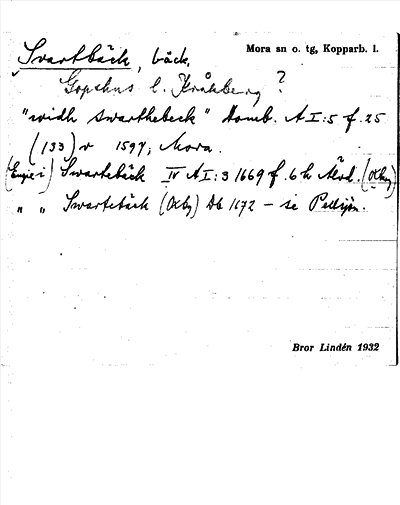 Svartbäck, bäck. Mora sn o. tg, Kopparb. l.
Gopshus l. Kråkberg ?
"widh swarthebeck" Domb. A I:5 f. 25
(133) v 1597, Mora.
Swartebäck IV A I:3 1669 f. 6 h Älvd. (Oxbg)
" " Swartebäck (Oxbg) Db 1672 – se
Bror Lindén 1932